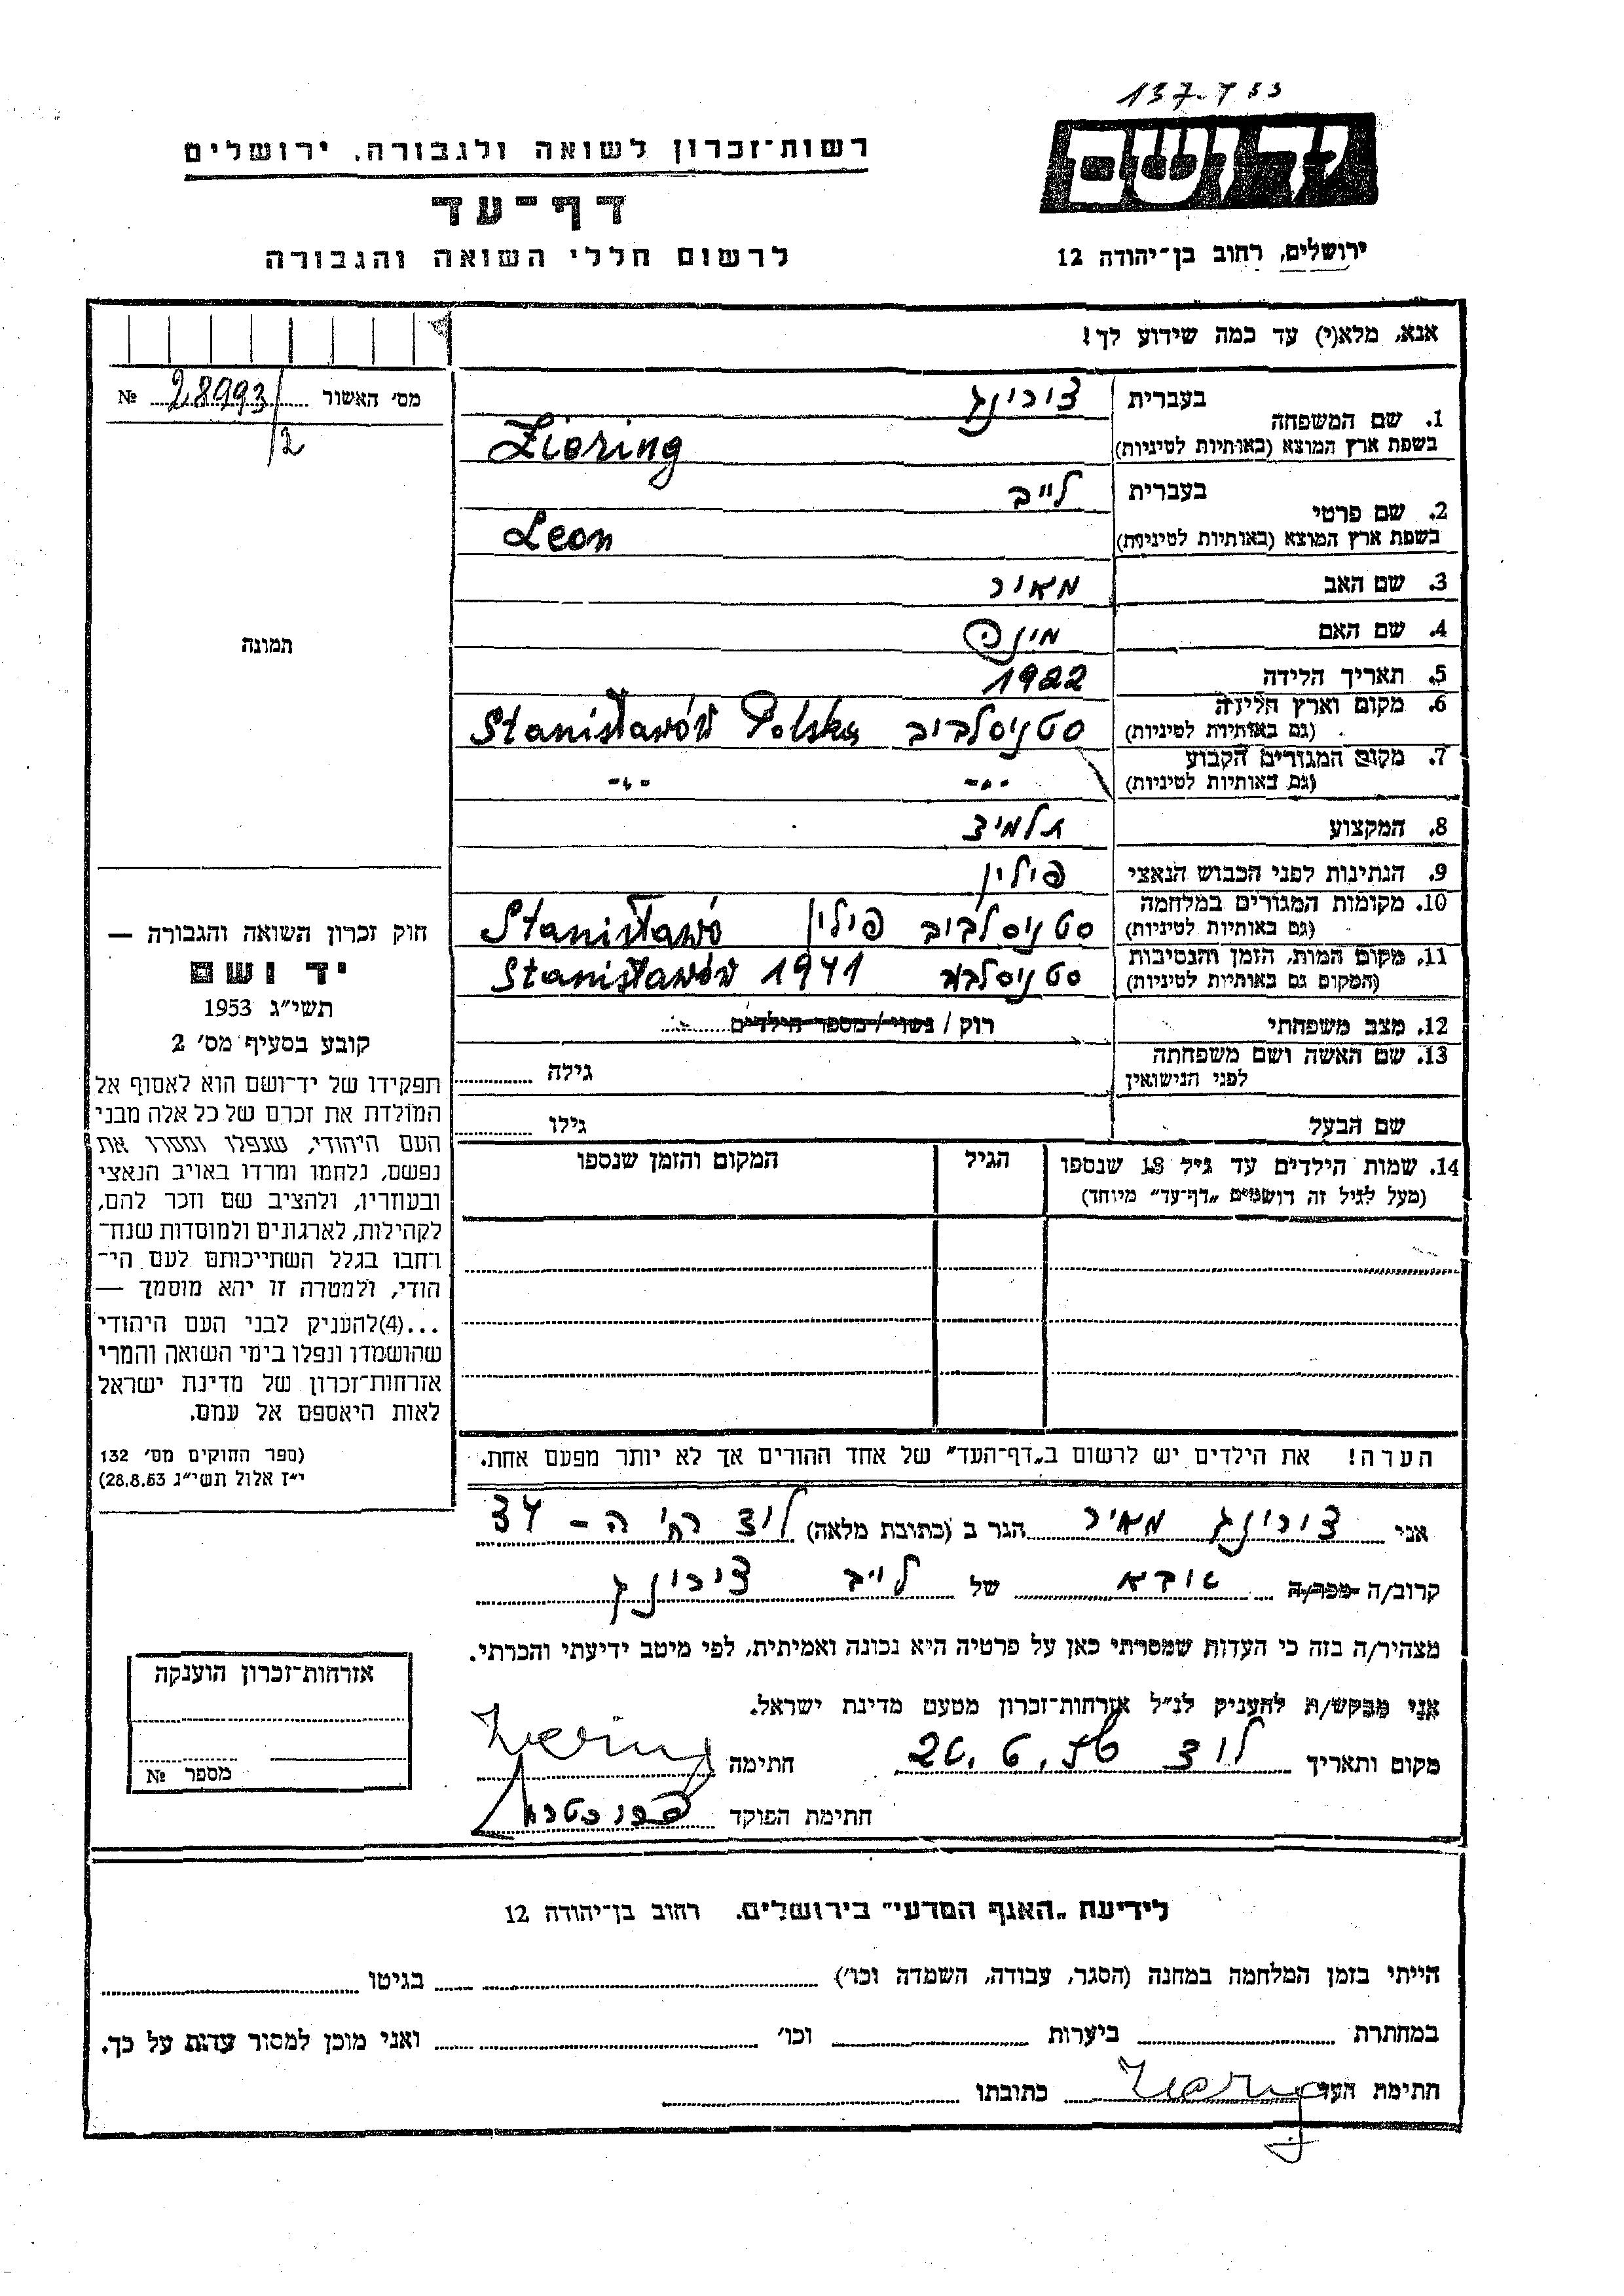 רשות־זכרון לשואה ולגבורה, ירושלים
דף־עד
לרשום חללי השואה והגבורה
ידושם
ירושלים, רחוב בן־יהודה 12
אנא, מלא(י) עד כמה שידוע לך!
מס׳ האשור № 28993/2
1. שם המשפחה בעברית צירינג
בשפת ארץ המוצא (באותיות לטיניות) Ziering
2. שם פרטי בעברית לייב
בשפת ארץ המוצא (באותיות לטיניות) Leon
3. שם האב מאיר
4. שם האם
5. תאריך הלידה 1922
6. מקום וארץ הלידה (גם באותיות לטיניות) סטניסלביב Stanisławów Polska
7. מקום המגורים הקבוע (גם באותיות לטיניות) -"- -"-
8. המקצוע תלמיד
9. הנתינות לפני הכבוש הנאצי פולין
10. מקומות המגורים במלחמה (גם באותיות לטיניות) סטניסלביב פולין Stanisławó
11. מקום המות, הזמן והנסיבות (המקום גם באותיות לטיניות) סטניסלבוב Stanisławów 1941
12. מצב משפחתי רוק / נשוי / מספר הילדים
13. שם האשה ושם משפחתה לפני הנישואין גילה
שם הבעל גילו
14. שמות הילדים עד גיל 18 שנספו הגיל המקום והזמן שנספו
(מעל לגיל זה רושמים „דף־עד" מיוחד)
הערה! את הילדים יש לרשום ב„דף־העד" של אחד ההורים אך לא יותר מפעם אחת.
תמונה
חוק זכרון השואה והגבורה —
יד ושם
תשי״ג 1953
קובע בסעיף מס׳ 2
תפקידו של יד־ושם הוא לאסוף אל
המולדת את זכרם של כל אלה מבני
העם היהודי, שנפלו ומסרו את
נפשם, נלחמו ומרדו באויב הנאצי
ובעוזריו, ולהציב שם וזכר להם,
לקהילות, לארגונים ולמוסדות שנח־
רחבו בגלל השתייכותם לעם הי־
הודי, ולמטרה זו יהא מוסמך —
...(4)להעניק לבני העם היהודי
שהושמדו ונפלו בימי השואה והמרי
אזרחות־זכרון של מדינת ישראל
לאות היאספם אל עמם.
(ספר החוקים מס׳ 132
י״ז אלול תשי״ג 28.8.53)
אני צירינג מאיר הגר ב (כתובת מלאה) לוד רח׳ ה- 34
קרוב/ה מכר/ה אבא של לייב צירינג
מצהיר/ה בזה כי העדות שמסרתי כאן על פרטיה היא נכונה ואמיתית, לפי מיטב ידיעתי והכרתי.
אני מבקש/ת להעניק לנ״ל אזרחות־זכרון מטעם מדינת ישראל.
מקום ותאריך לוד 20.6.56 חתימה Ziering
חתימת הפוקד
אזרחות־זכרון הוענקה
מספר №
לידיעת „האגף המדעי" בירושלים. רחוב בן־יהודה 12
הייתי בזמן המלחמה במחנה (הסגר, עבודה, השמדה וכו׳) בגיטו
במחתרת ביערות וכו׳ ואני מוכן למסור עדות על כך.
חתימת העד Ziering כתובתו